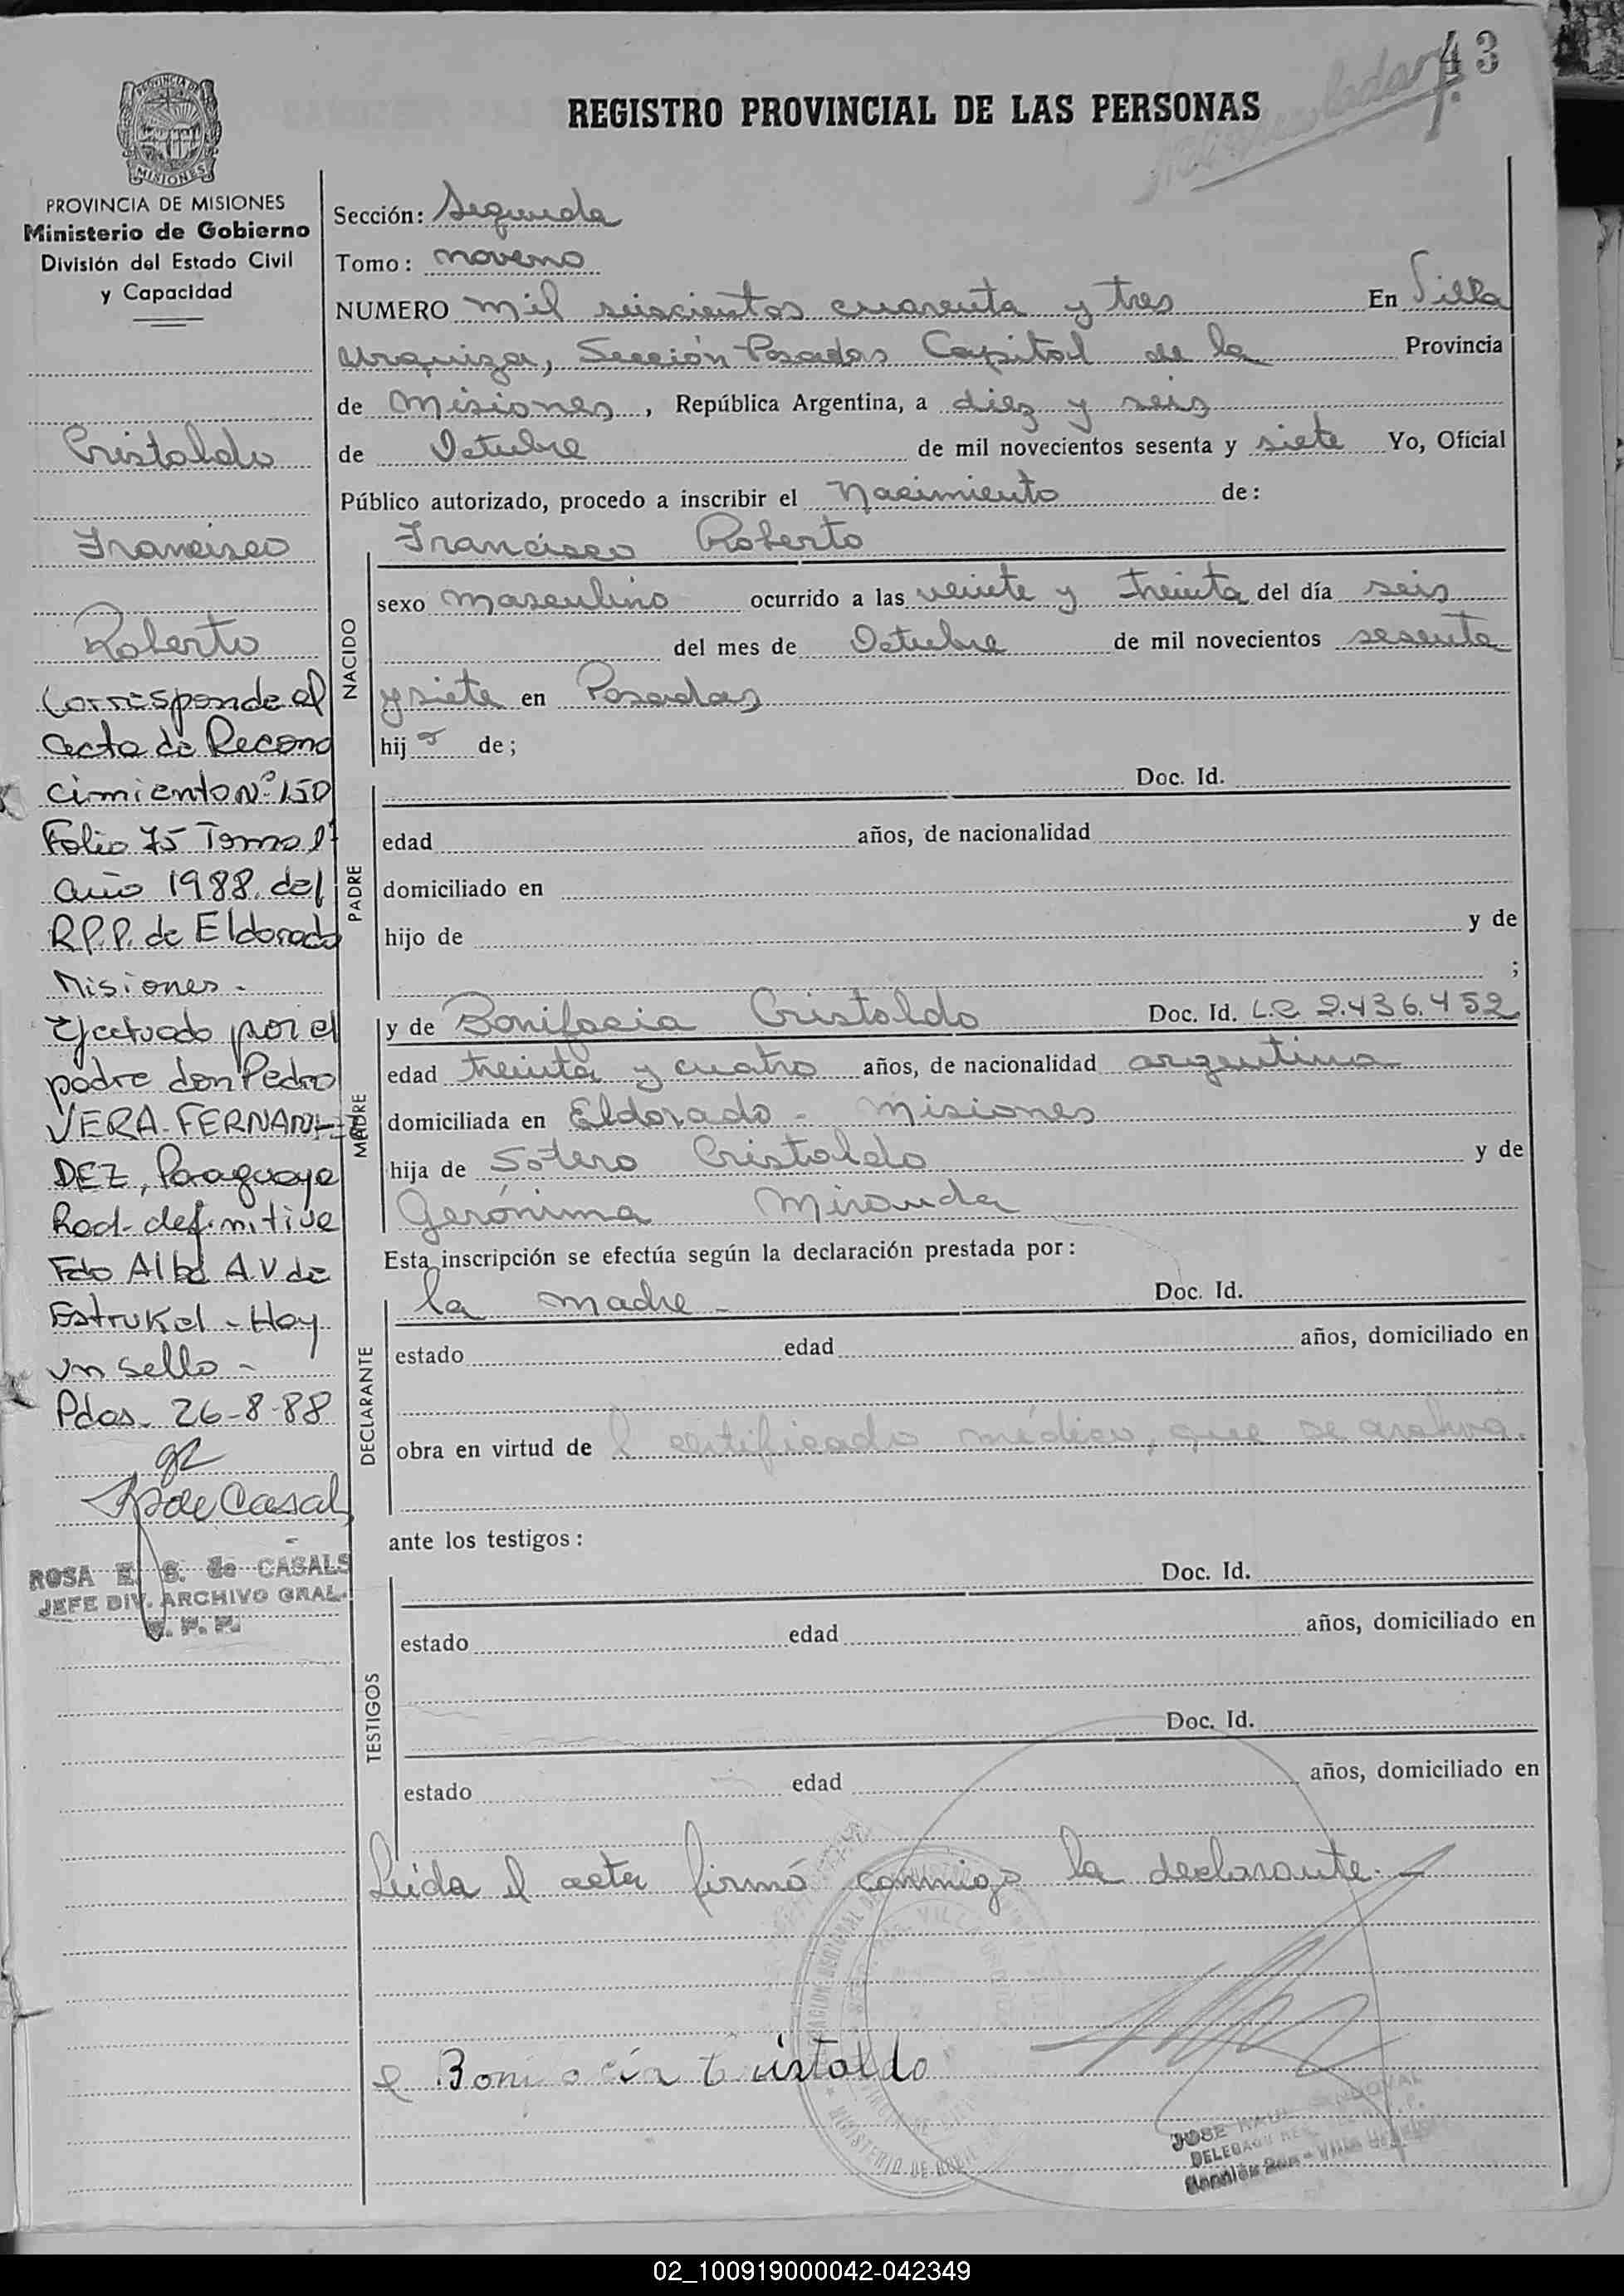 43
PROVINCIA DE
MISIONES
REGISTRO PROVINCIAL DE LAS PERSONAS
PROVINCIA DE MISIONES
Ministerio de Gobierno
División del Estado Civil
y Capacidad
Sección: Segunda
Tomo: noveno
NUMERO mil seiscientos cuarenta y tres En Villa
Urquiza, Sección Posadas Capital de la Provincia
de Misiones, República Argentina, a diez y seis
de Octubre de mil novecientos sesenta y siete Yo, Oficial
Público autorizado, procedo a inscribir el Nacimiento de:
Francisco Roberto
NACIDO
sexo masculino ocurrido a las veinte y treinta del día seis
del mes de Octubre de mil novecientos sesenta
y siete en Posadas
hijo de;
PADRE
Doc. Id.
edad años, de nacionalidad
domiciliado en
hijo de y de
;
MADRE
y de Bonifacia Cristaldo Doc. Id. L.C 2.436.452
edad treinta y cuatro años, de nacionalidad argentina
domiciliada en Eldorado - Misiones
hija de Sotero Cristaldo y de
Gerónima Miranda
Esta inscripción se efectúa según la declaración prestada por:
DECLARANTE
la madre - Doc. Id.
estado edad años, domiciliado en
obra en virtud de l certificado médico, que se archiva.
ante los testigos:
TESTIGOS
Doc. Id.
estado edad años, domiciliado en
Doc. Id.
estado edad años, domiciliado en
Leída el acta firmó conmigo la declarante.-
Bonifacia Cristaldo
JOSE RAUL SANDOVAL
Cristaldo
Francisco
Roberto
Corresponde al
acta de Recono
cimiento Nº 150
Folio 75 Tomo 1º
año 1988. del
R.P.P. de Eldorado
Misiones -
Efectuado por el
padre don Pedro
VERA FERNAN-
DEZ, Paraguayo
Rad. definitiva
Fdo Alba A.V de
Estrukel - Hay
un sello -
Pdas. 26-8-88
R de Casals
ROSA E. S. de CASALS
JEFE DIV. ARCHIVO GRAL.
R. P. P.
02_100919000042-042349